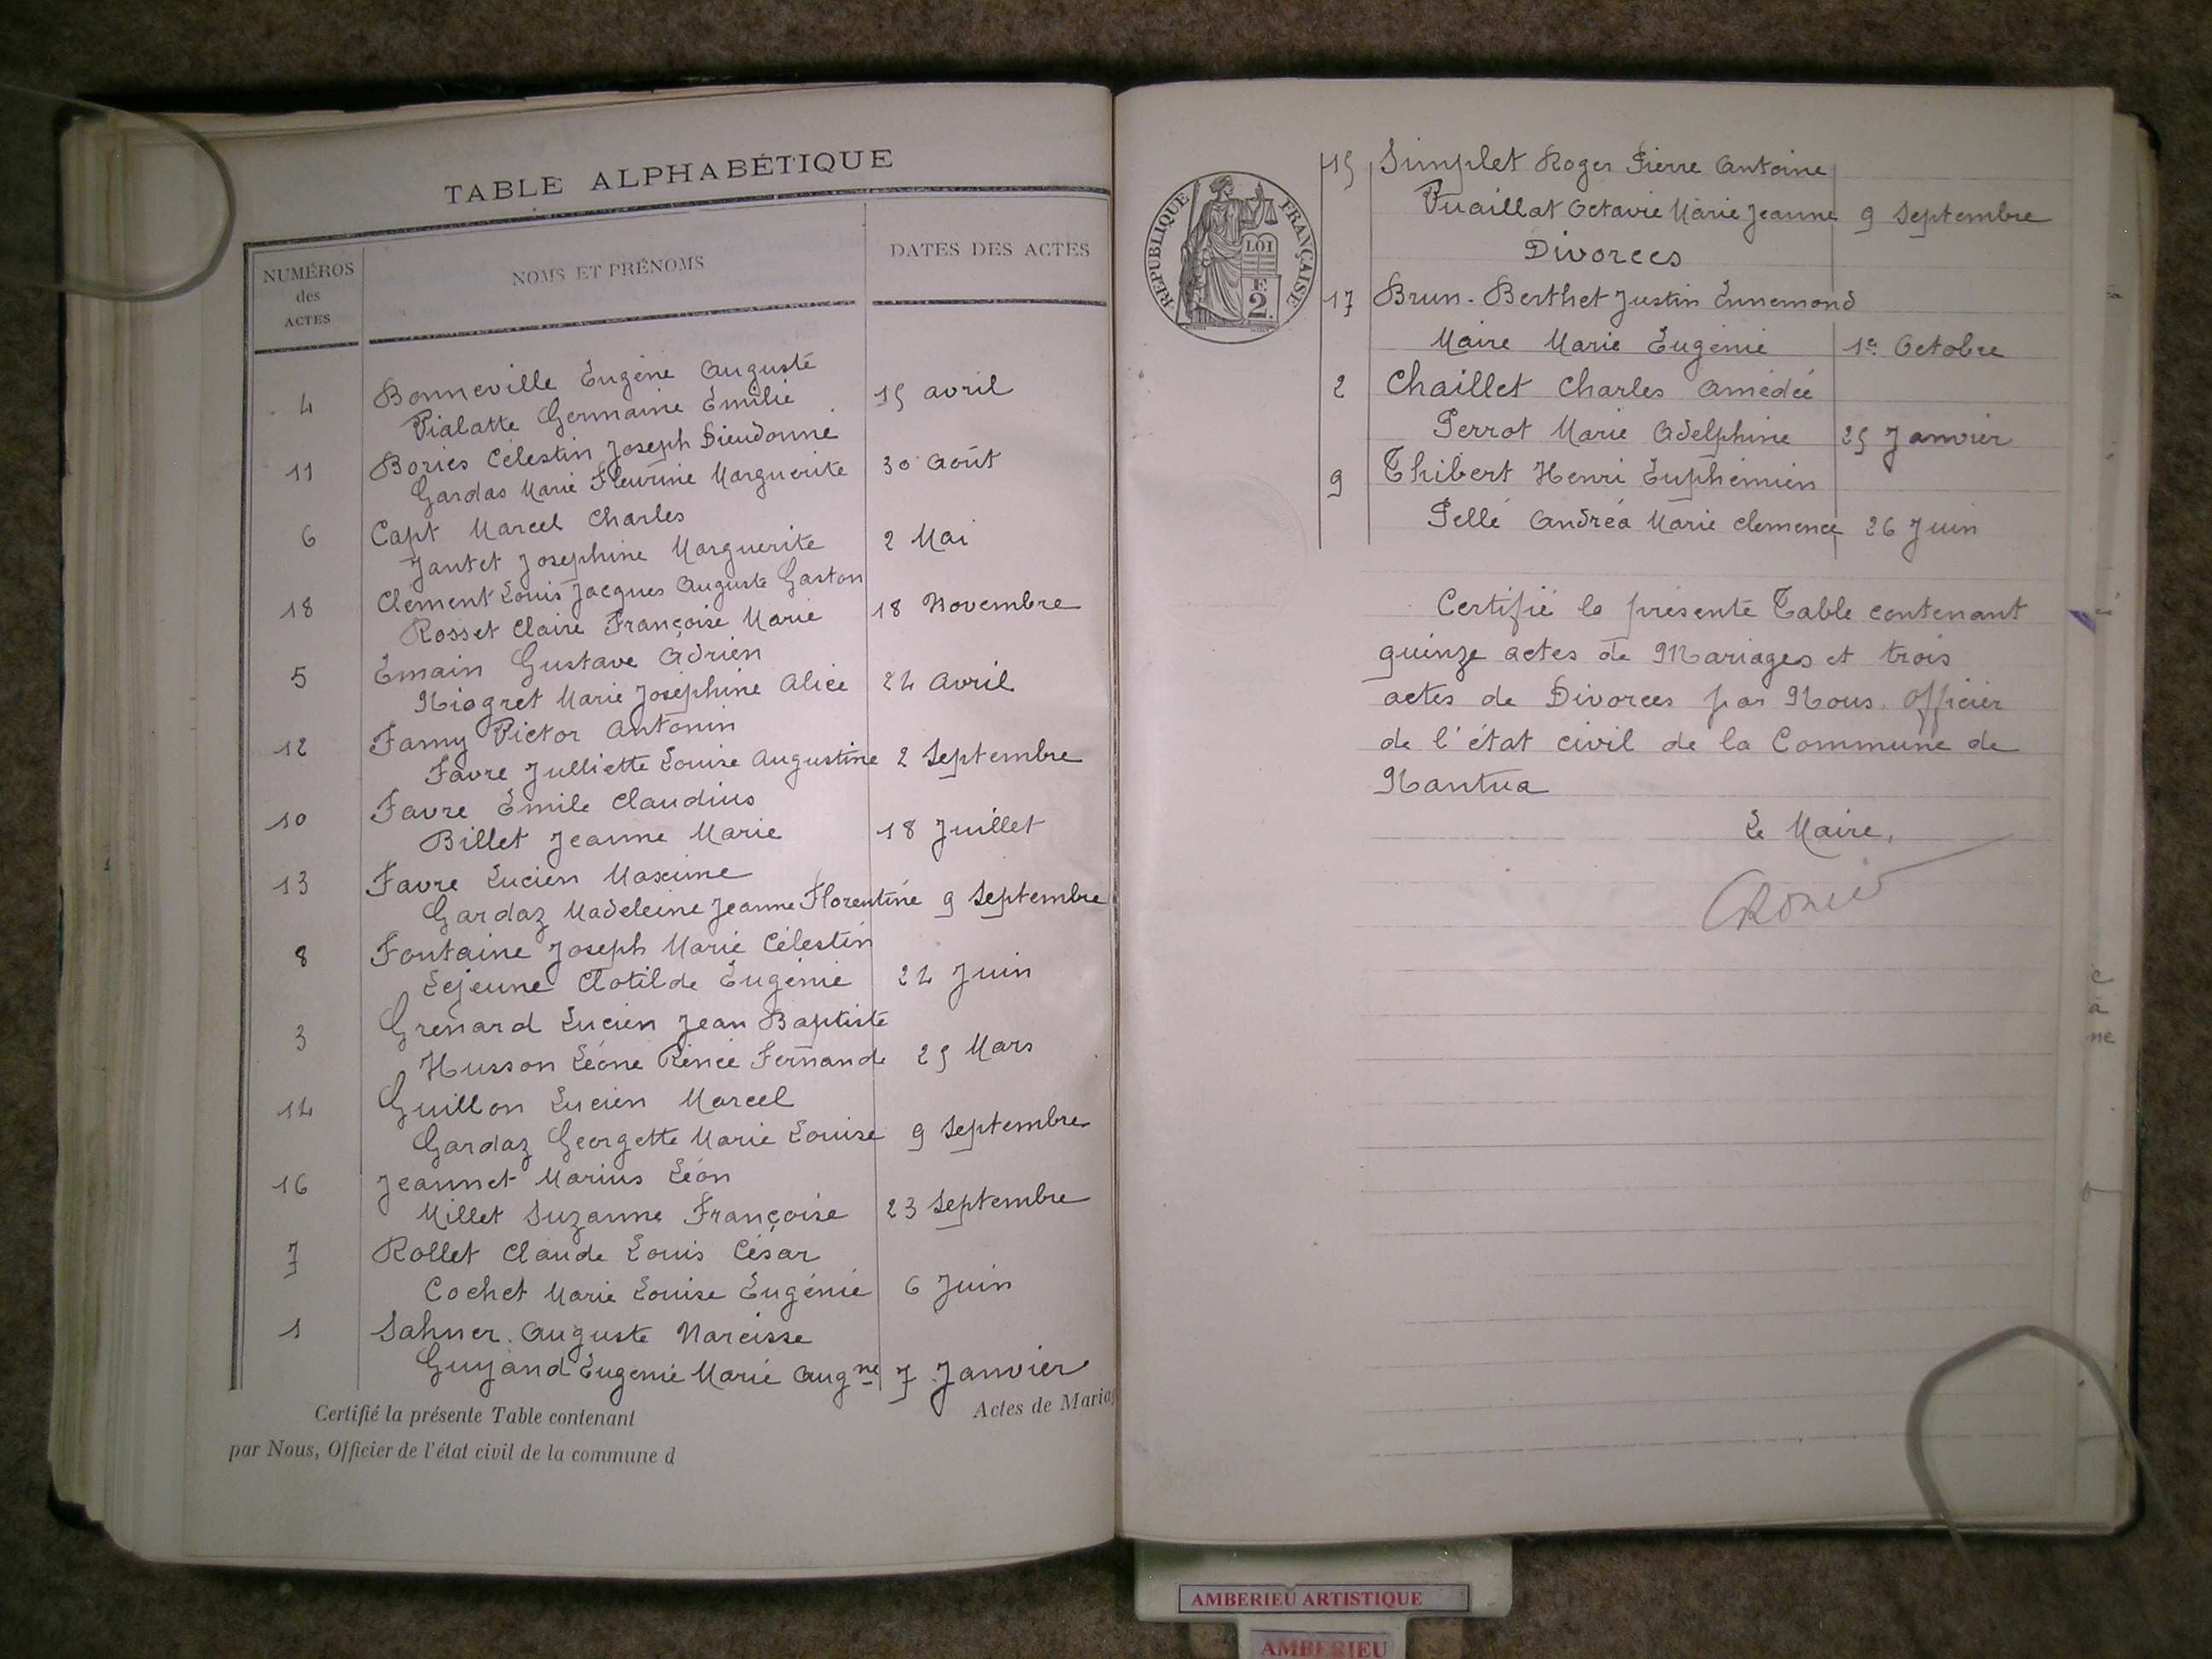 TABLE ALPHABÉTIQUE
NUMÉROS des ACTES
NOMS ET PRÉNOMS
DATES DES ACTES
Bonneville Eugène Auguste
4 Vialatte Germaine Emilie 15 avril
Bories Célestin Joseph Dieudonné
11 Gardas Marie Fleurine Marguerite 30 Août
Capt Marcel Charles
6 Jantet Josephine Marguerite 2 Mai
Clement Louis Jacques Auguste Gaston
18 Rosset Claire Françoise Marie 18 Novembre
Emain Gustave Adrien
5 Niogret Marie Joséphine Alice 24 Avril
Famy Victor Antonin
12 Favre Julliette Louise Augustine 2 Septembre
Favre Emile Claudius
10 Billet Jeanne Marie 18 Juillet
13 Favre Lucien Maxime
Gardaz Madeleine Jeanne Florentine 9 Septembre
8 Fontaine Joseph Marie Célestin
Lejeune Clotilde Eugénie 24 Juin
3 Grenard Lucien Jean Baptiste
Husson Léone Rénée Fernande 25 Mars
14 Guillon Lucien Marcel
Gardaz Georgette Marie Louise 9 Septembre
16 Jeannet Marius Léon
Millet Suzanne Françoise 23 Septembre
7 Rollet Claude Louis César
Cochet Marie Louise Eugénie 6 Juin
1 Sahner Auguste Narcisse
Guyand Eugenie Marie Aug ne 7 Janvier
Certifié la présente Table contenant Actes de Maria
par Nous, Officier de l'état civil de la commune d
RÉPUBLIQUE FRANÇAISE
LOI
F.
2.
15 Simplet Roger Pierre Antoine
Vuaillat Octavie Marie Jeanne 9 Septembre
Divorces
17 Brun-Berthet Justin Ennemond
Maire Marie Eugénie 1er Octobre
2 Chaillet Charles Amédée
Perrot Marie Adelphine 25 Janvier
9 Thibert Henri Euphémien
Pellé Andréa Marie Clemence 26 Juin
Certifié la présente Table contenant
quinze actes de Mariages et trois
actes de Divorces par Nous, Officier
de l'état civil de la Commune de
Nantua
Le Maire,
AMBERIEU ARTISTIQUE
AMBERIEU